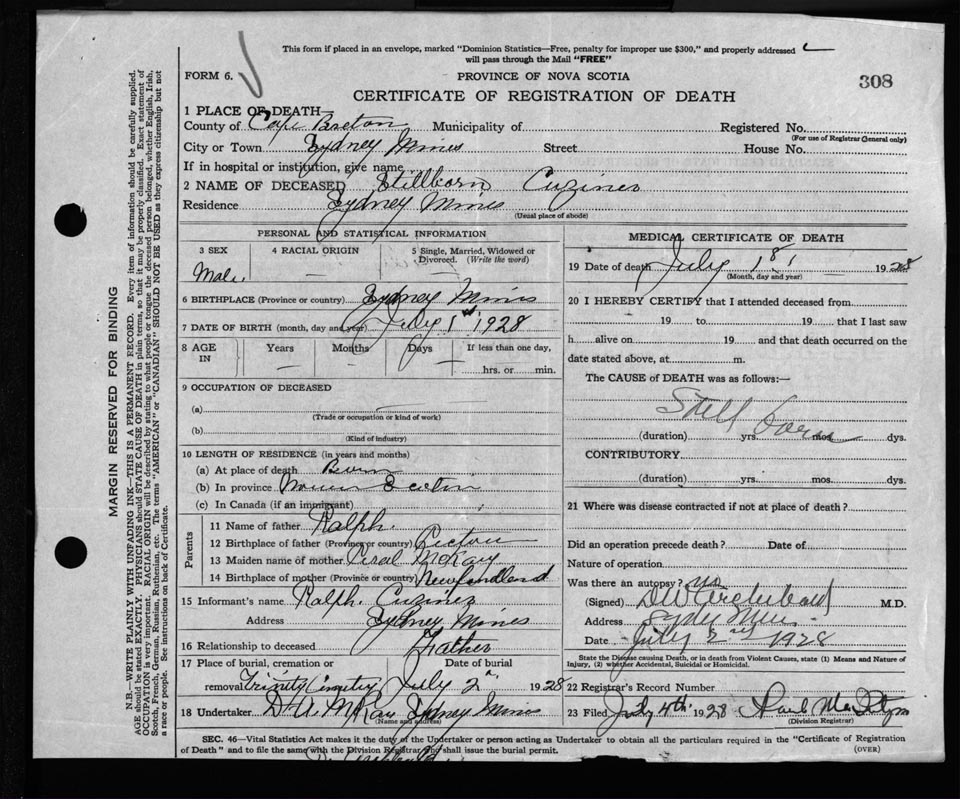 This form if placed in an envelope, marked "Dominion Statistics—Free, penalty for improper use $300," and properly addressed
will pass through the Mail "FREE"
FORM 6.
PROVINCE OF NOVA SCOTIA
308
CERTIFICATE OF REGISTRATION OF DEATH
1 PLACE OF DEATH
County of Cape Breton Municipality of Registered No.
(For use of Registrar General only)
City or Town Sydney Mines Street House No.
If in hospital or institution, give name
2 NAME OF DECEASED Stillborn Cuzines
Residence Sydney Mines
(Usual place of abode)
PERSONAL AND STATISTICAL INFORMATION
3 SEX 4 RACIAL ORIGIN 5 Single, Married, Widowed or Divorced. (Write the word)
Male. — —
6 BIRTHPLACE (Province or country) Sydney Mines
7 DATE OF BIRTH (month, day and year) July 1st 1928
8 AGE IN Years Months Days If less than one day,
— — — hrs. or min.
9 OCCUPATION OF DECEASED
(a)
(Trade or occupation or kind of work)
(b)
(Kind of industry)
10 LENGTH OF RESIDENCE (in years and months)
(a) At place of death Born
(b) In province Nova Scotia
(c) In Canada (if an immigrant)
Parents
11 Name of father Ralph.
12 Birthplace of father (Province or country) Pictou
13 Maiden name of mother McKay
14 Birthplace of mother (Province or country) Newfoundland
15 Informant's name Ralph Cuzines
Address Sydney Mines
16 Relationship to deceased Father
17 Place of burial, cremation or removal Date of burial
Trinity Cemetry July 2 1928
18 Undertaker D A McKay Sydney Mines
(Name and address)
MEDICAL CERTIFICATE OF DEATH
19 Date of death July 1st 1928
(Month, day and year)
20 I HEREBY CERTIFY that I attended deceased from
19 to 19 that I last saw
h alive on 19 and that death occurred on the
date stated above, at m.
The CAUSE of DEATH was as follows:—
Still born
(duration) yrs. mos. dys.
CONTRIBUTORY
(duration) yrs. mos. dys.
21 Where was disease contracted if not at place of death?
Did an operation precede death? Date of
Nature of operation
Was there an autopsy? no
(Signed) DW Archibald M.D.
Address Sydy Mines
Date July 2nd 1928
State the Disease causing Death, or in death from Violent Causes, state (1) Means and Nature of
Injury, (2) whether Accidental, Suicidal or Homicidal.
22 Registrar's Record Number
23 Filed July 4th 1928
(Division Registrar)
SEC. 46—Vital Statistics Act makes it the duty of the Undertaker or person acting as Undertaker to obtain all the particulars required in the "Certificate of Registration
of Death" and to file the same with the Division Registrar and shall issue the burial permit. (OVER)
MARGIN RESERVED FOR BINDING
N.B.—WRITE PLAINLY WITH UNFADING INK—THIS IS A PERMANENT RECORD. Every item of information should be carefully supplied.
AGE should be stated EXACTLY. PHYSICIANS should STATE CAUSE OF DEATH in plain terms, so that it may be properly classified. Exact statement of
OCCUPATION is very important. RACIAL ORIGIN will be described by stating to what people or tongue the deceased person belonged, whether English, Irish,
Scotch, French, German, Russian, Ruthenian, etc. The terms "AMERICAN" or "CANADIAN" SHOULD NOT BE USED as they express citizenship but not
a race or people. See instructions on back of Certificate.